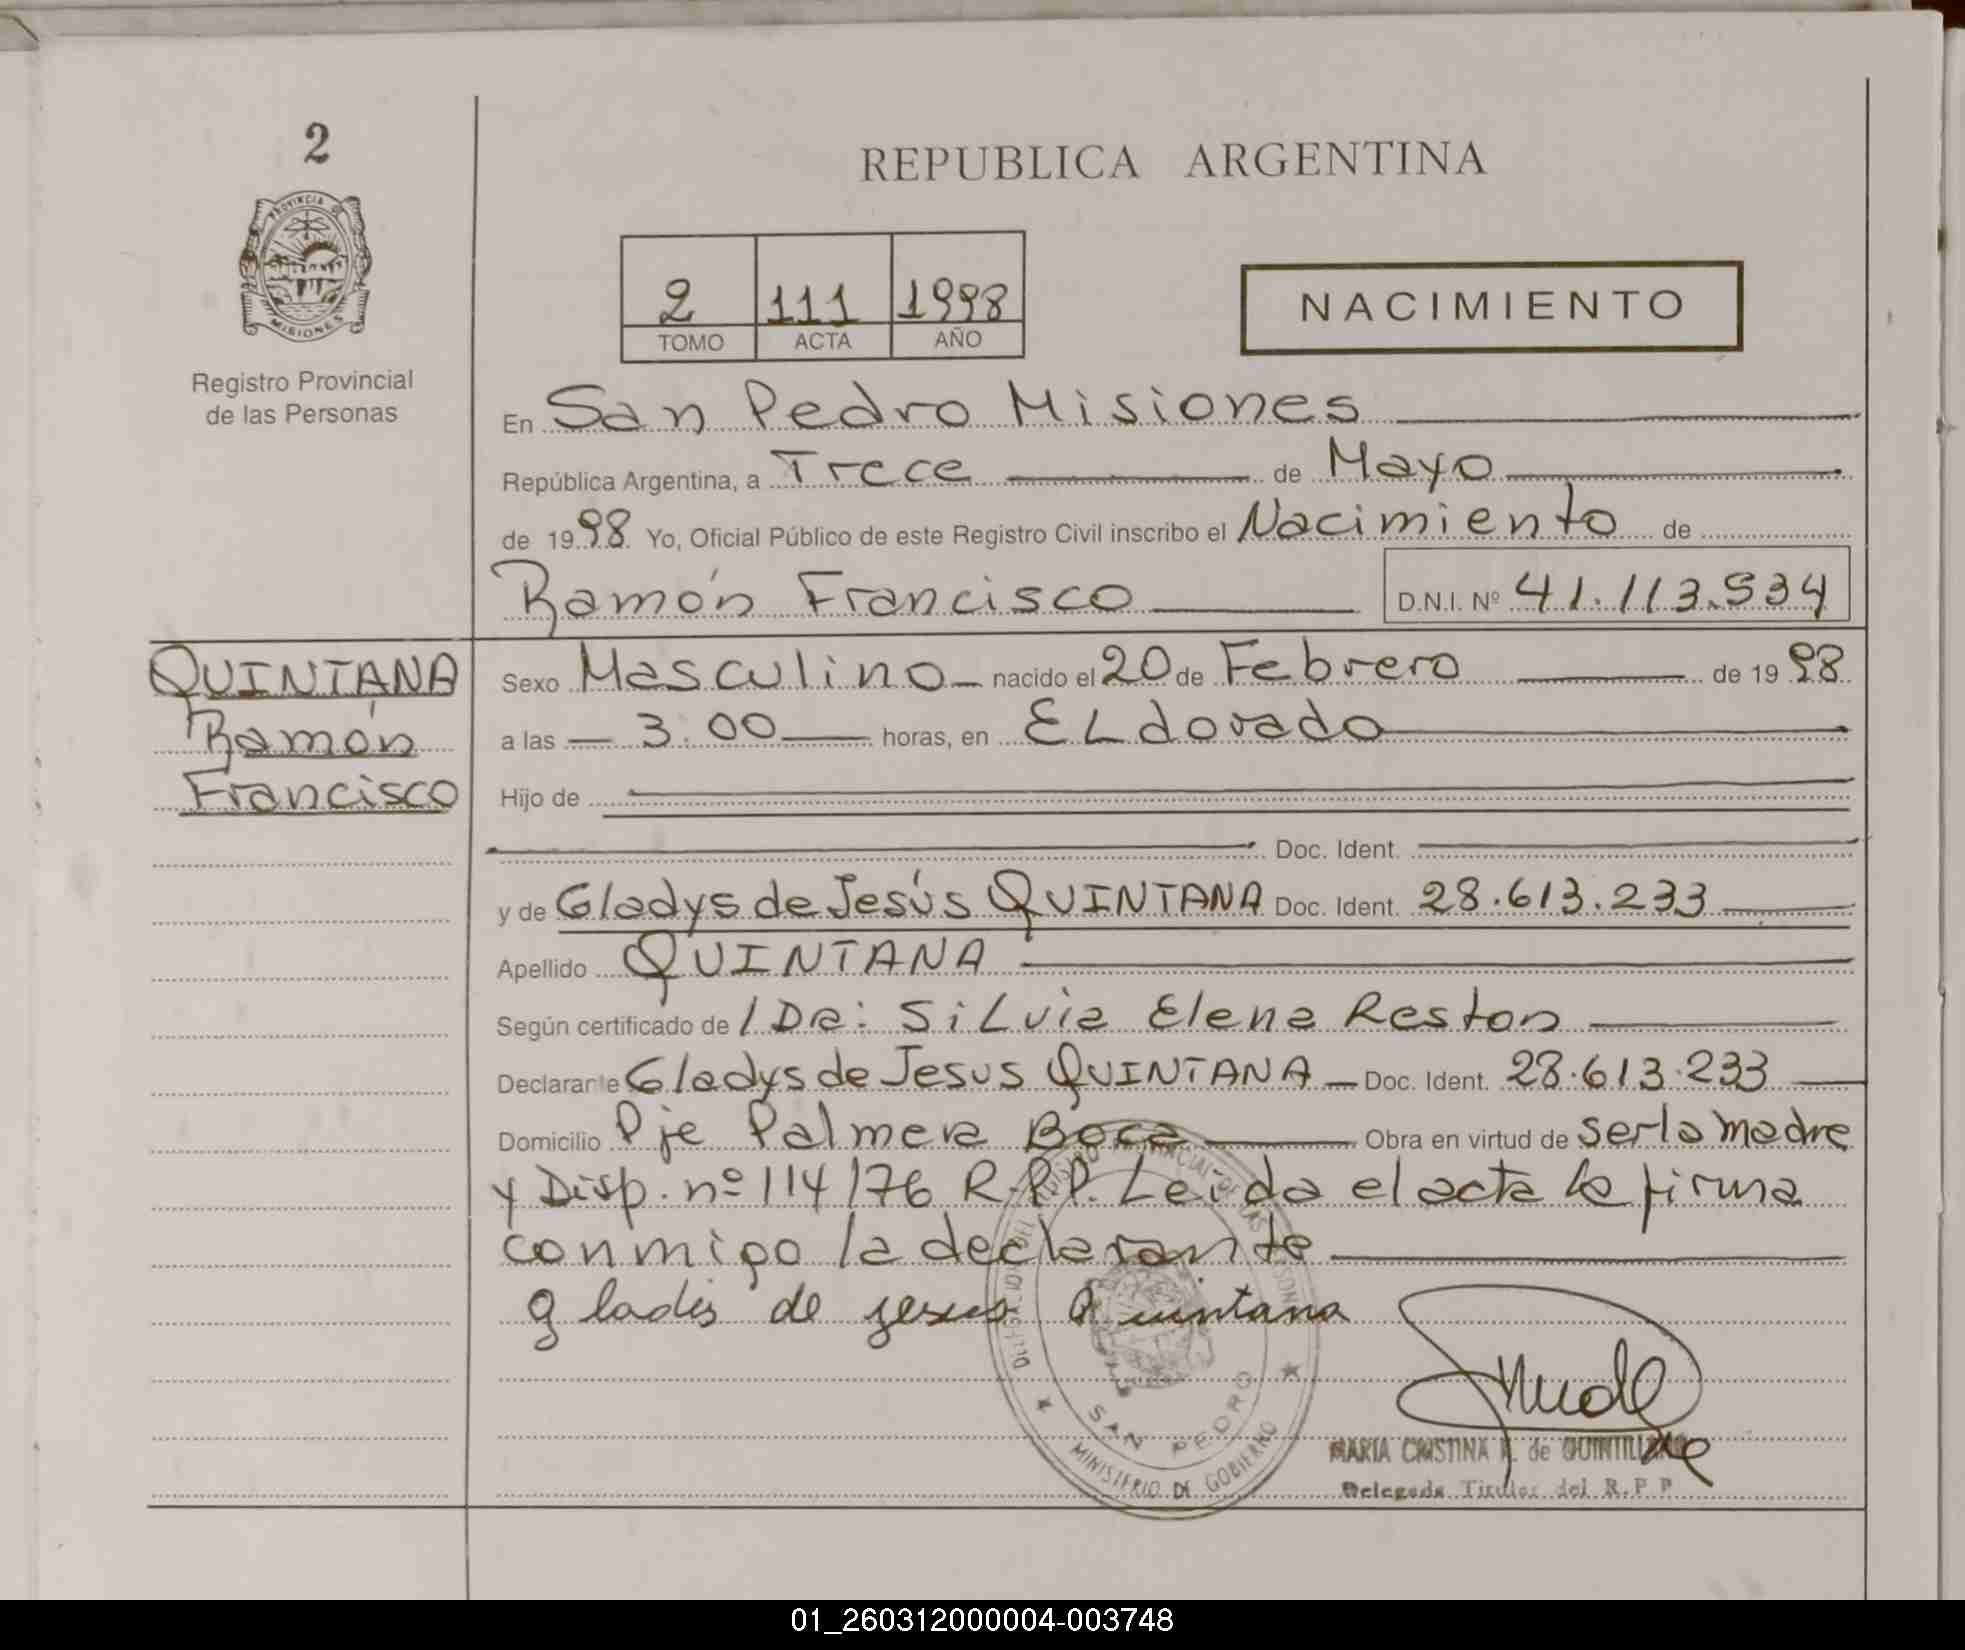 2
REPUBLICA ARGENTINA
PROVINCIA DE
MISIONES
Registro Provincial
de las Personas
2 111 1998
TOMO ACTA AÑO
NACIMIENTO
En San Pedro Misiones
República Argentina, a Trece de Mayo
de 1998 Yo, Oficial Público de este Registro Civil inscribo el Nacimiento de
Ramón Francisco D.N.I. Nº 41.113.534
QUINTANA
Ramón
Francisco
Sexo Masculino nacido el 20 de Febrero de 1998
a las 3:00 horas, en ELdorado
Hijo de
Doc. Ident.
y de Gladys de Jesús QUINTANA Doc. Ident. 28.613.233
Apellido QUINTANA
Según certificado de / Dra: SiLvia Elena Reston
Declarante Gladys de Jesus QUINTANA Doc. Ident. 28.613.233
Domicilio Pje Palmera Boca Obra en virtud de ser la madre
y Disp. nº 114/76 R.P.P. Leída el acta la firma
conmigo la declarante
gladis de jesus Quintana
SAN PEDRO
MINISTERIO DE GOBIERNO
MARIA CRISTINA de
Delegada Titular del R.P.P.
01_260312000004-003748